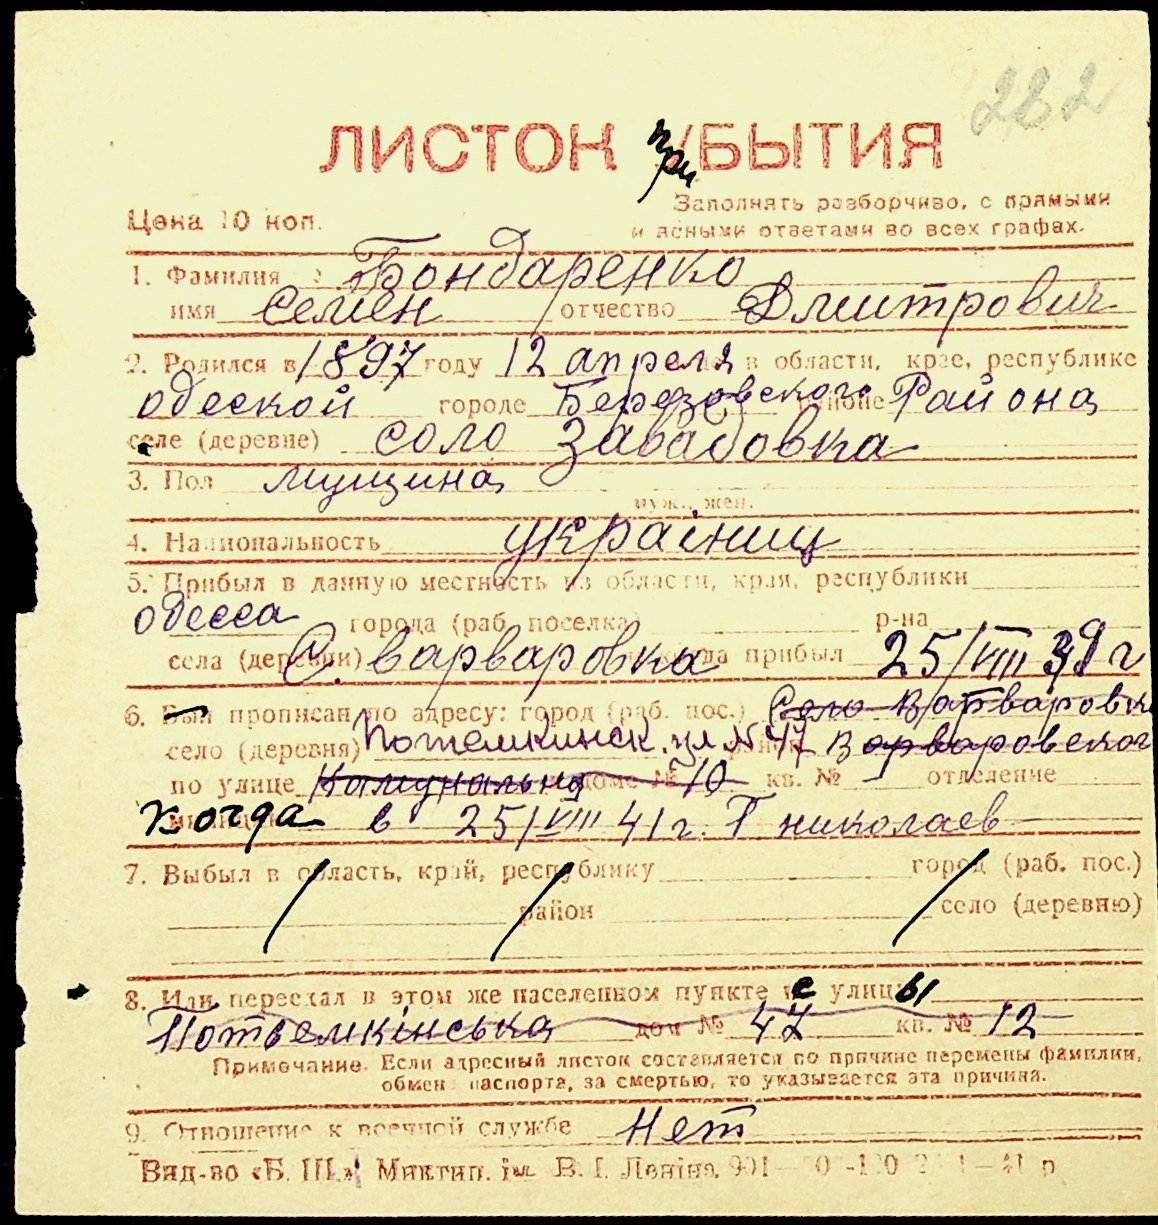 282
ЛИСТОК при УБЫТИЯ
Цена 10 коп.
Заполнять разборчиво, с прямыми
и ясными ответами во всех графах.
1. Фамилия Бондаренко
имя Семен отчество Дмитрович
2. Родился в 1897 году 12 апреля в области, крае, республике
одеской городе Березовского районе Района
селе (деревне) соло Завадовка
3. Пол мущина
муж., жен.
4. Национальность українец
5. Прибыл в данную местность из области, края, республики
Одесса города (раб. поселка) р-на
села (деревни) С. Варваровка когда прибыл 25/VIII 39 г
6. Был прописан по адресу: город (раб. пос.) Село Варваровка
село (деревня) Потемкинск. ул. № 47 район Варваровского
по улице Комунальна доме № 10 кв. № отделение
милиции когда в 25/VIII 41 г. Г николаев
7. Выбыл в область, край, республику город (раб. пос.)
район село (деревню)
8. Или переехал в этом же населенном пункте с улицы
Потьемкінська дом № 47 кв. № 12
Примечание. Если адресный листок составляется по причине перемены фамилии,
обмен паспорта, за смертью, то указывается эта причина.
9. Отношение к военной службе Нет
Вид-во «Б. Ш.» Миктип. ім. В. І. Леніна